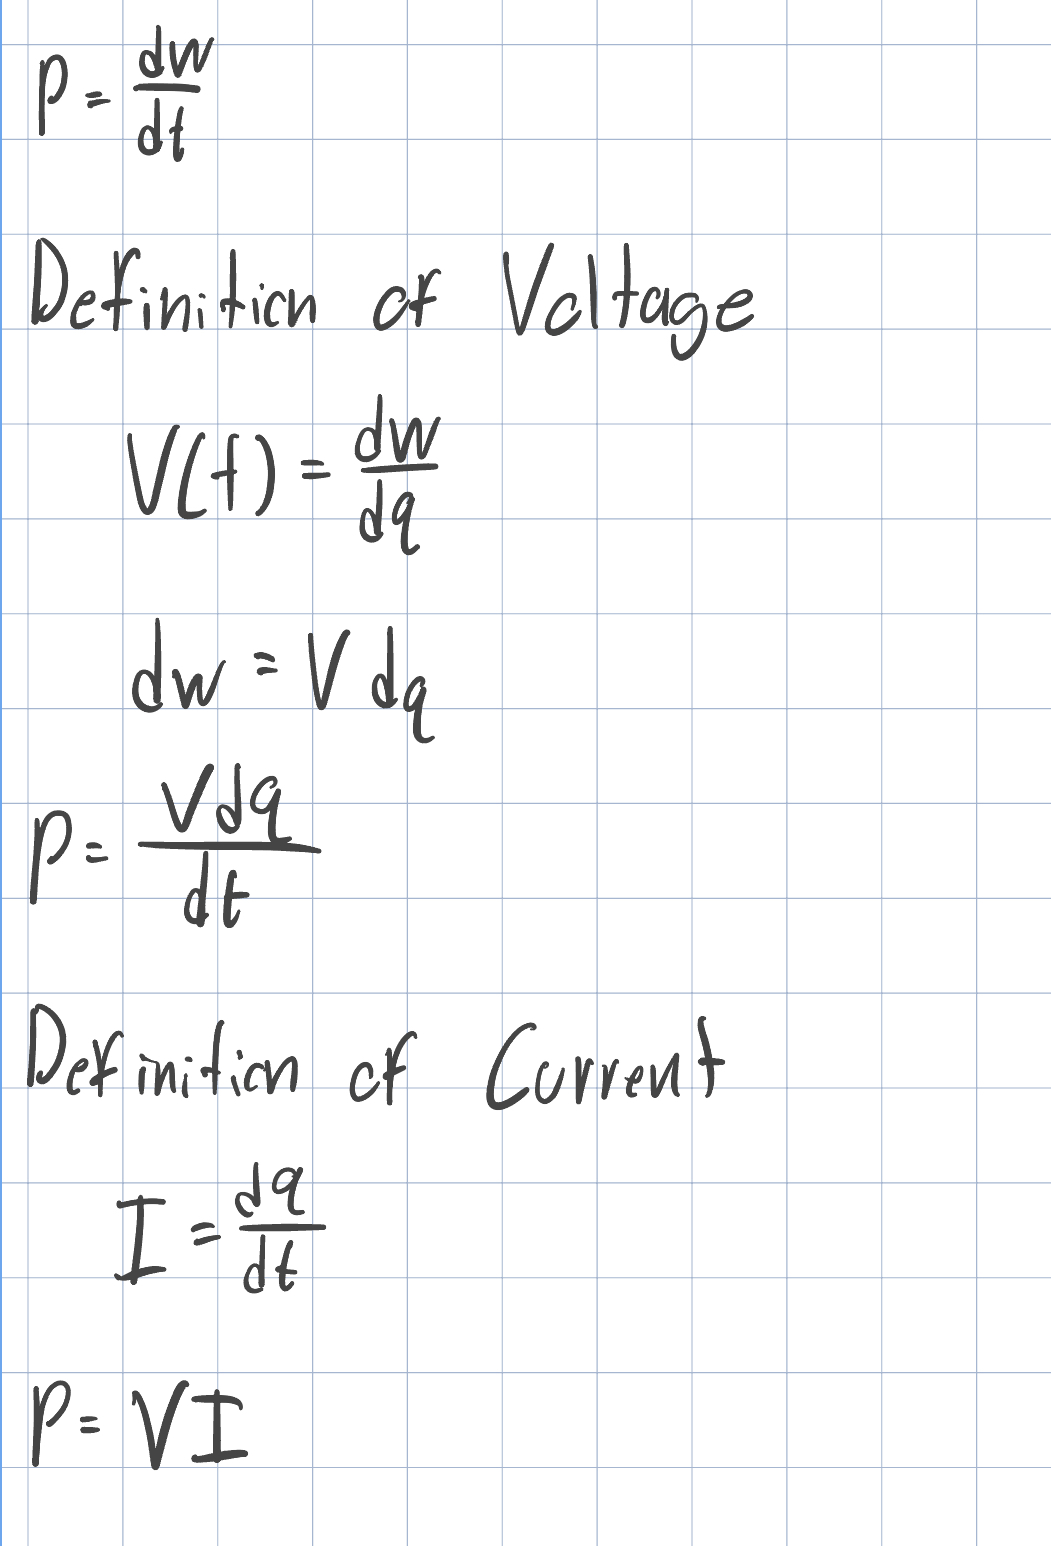 P = dw/dt
Definition of Voltage
V(t) = dw/dq
dw = V dq
P = Vdq/dt
Definition of Current
I = dq/dt
P = VI